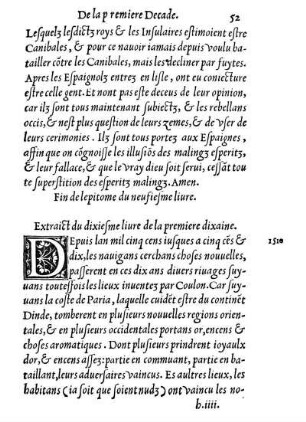 De la premiere Decade. 52
Lesquelz lesdictz roys & les Insulaires estimoient estre
Canibales, & pour ce nauoir iamais depuis voulu ba-
tailler côtre les Canibales, mais les decliner par fuytes.
Apres les Espaignolz entrez en lisle, ont eu coniecture
estre celle gent. Et nont pas este deceus de leur opinion,
car ilz sont tous maintenant subiectz, & les rebellans
occis, & nest plus question de leurs zemes, & de vser de
leurs cerimonies. Ilz sont tous portez aux Espaignes,
affin que on côgnoisse les illusiôs des malingz esperitz,
& leur fallace, & que le vray dieu soit serui, cessãt tou
te superstition des esperitz malingz. Amen.
Fin de lepitome du neufiesme liure.
Extraict du dixiesme liure de la premiere dixaine.
DEpuis lan mil cinq cens iusques a cinq cẽs & 1510
dix, les nauigans cerchans choses nouuelles,
passerent en ces dix ans diuers riuages suy-
uans toutesfois les lieux inuentez par Coulon. Car suy-
uans la coste de Paria, laquelle cuidẽt estre du continẽt
Dinde, tomberent en plusieurs nouuelles regions orien-
tales, & en plusieurs occidentales portans or, encens &
choses aromatiques. Dont plusieurs prindrent ioyaulx
dor, & encens assez: partie en commuant, partie en ba-
taillant, leurs aduersaires vaincus. Es aultres lieux, les
habitans (ia soit que soient nudz) ont vaincu les no-
h.iiii.